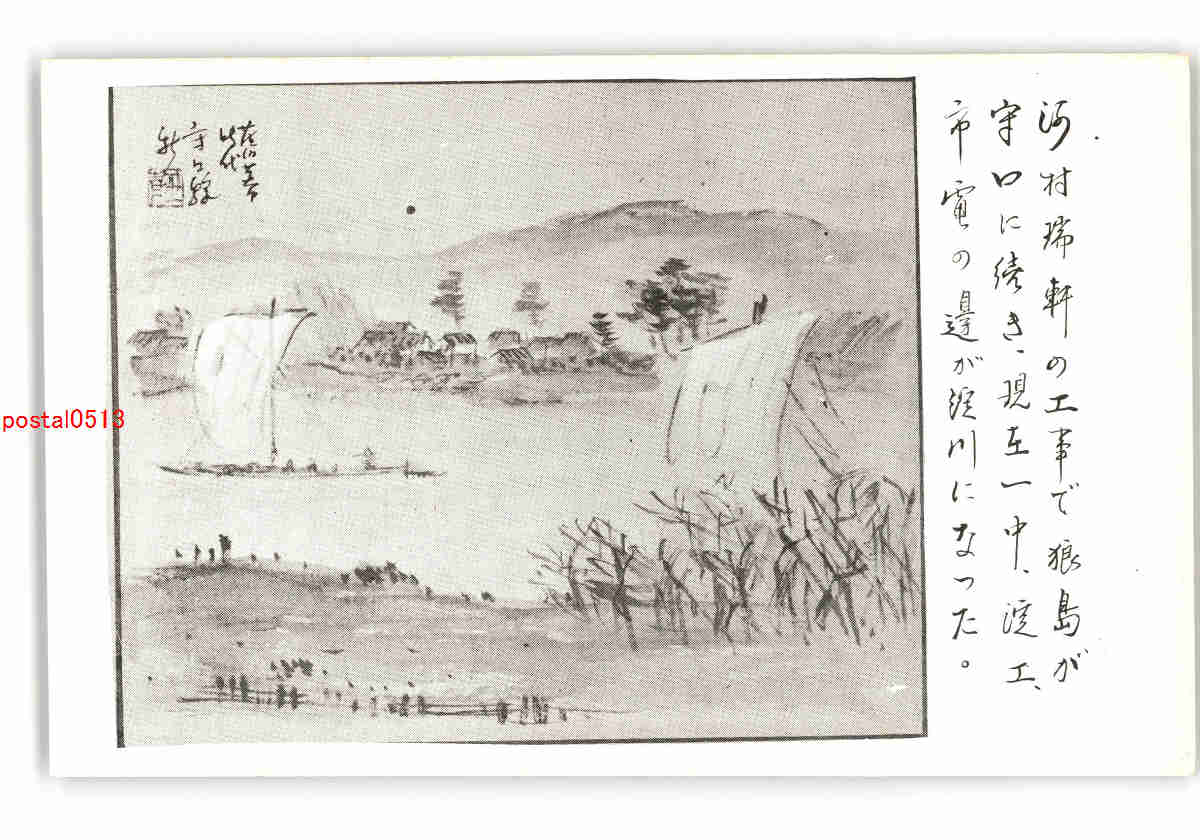 河村瑞軒の工事で狼島が
守口に続き、現在一中、淀工、
市電の邊が淀川になった。
時代
守口
postal0513